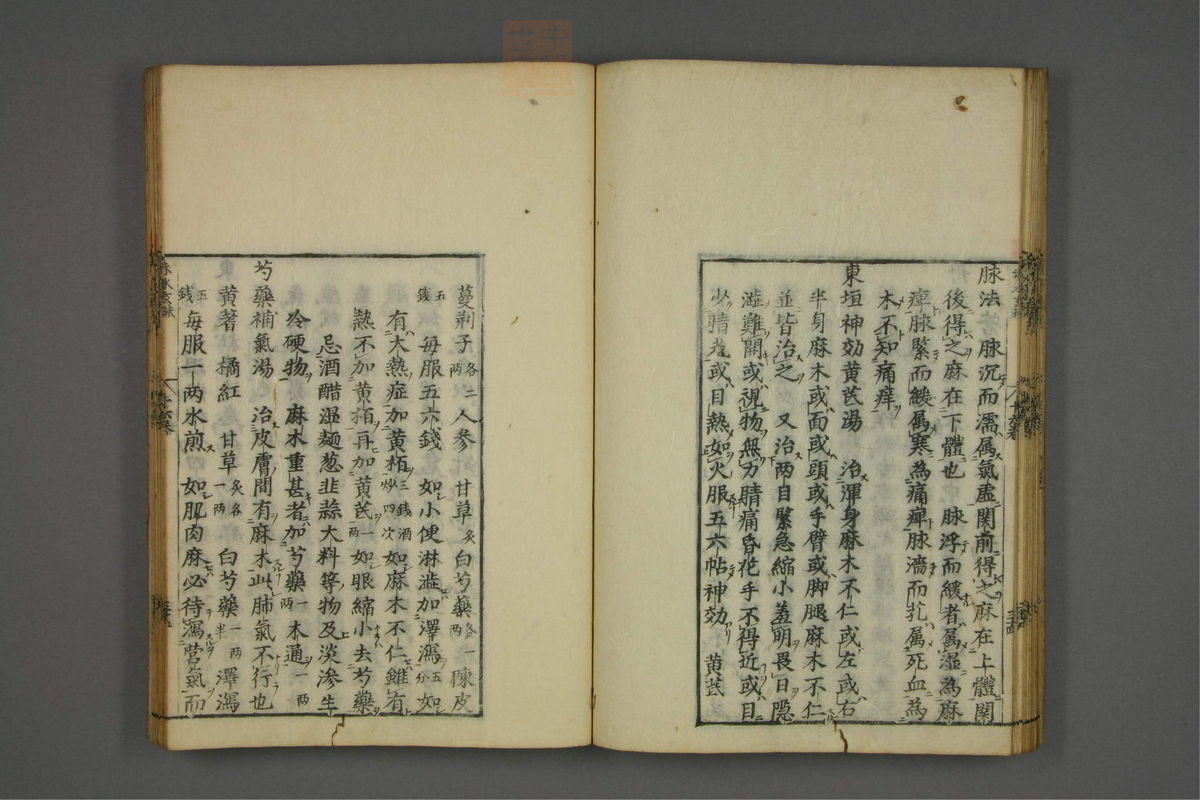 脉法 脉沉而濡属氣虚関前得之麻在上體関
後得之麻在下體也 脉浮而緩者属湿為麻
痺脉緊而緩属寒為痛痺脉濇而芤属死血為
木不知痛痒
東垣神効黄芪湯 治渾身麻木不仁或左或右
半身麻木或面或頭或手臂或脚腿麻木不仁
並皆治之 又治両目緊急縮小羞明畏日隠
澁難開或視物無力睛痛昏花手不得近或目
少睛光或目熱如火服五六帖神効 黄芪
蔓荊子各二両 人参 甘草炙 白芍藥各一両 陳皮
五錢 毎服五六錢 如小便淋澁加澤瀉五分如
有大熱症加黄栢三錢酒炒四次如麻木不仁雖有
熱不加黄栢再加黄芪一両如眼縮小去芍藥
忌酒醋湿麺葱韭蒜大料等物及淡滲生
冷硬物 麻木重甚者加芍藥一両木通一両
芍藥補氣湯 治皮膚間有麻木此肺氣不行也
黄著 橘紅 甘草炙各一両 白芍藥一両半 澤瀉
五錢 毎服一両水煎 如肌肉麻必待瀉営氣而